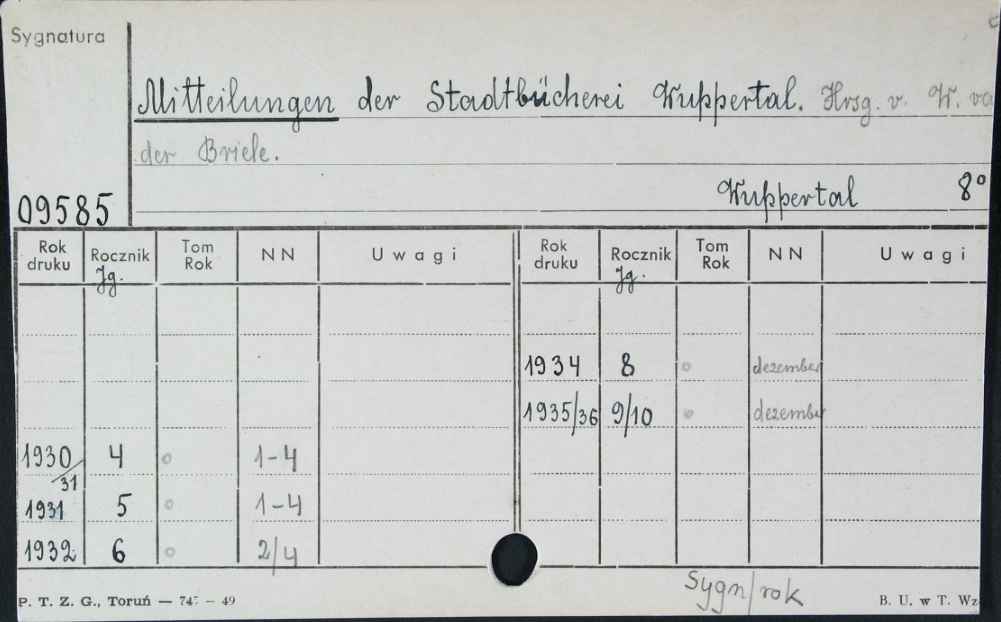 Sygnatura
Mitteilungen der Stadtbücherei Wuppertal. Hrsg. v. W. va
der Briele.
Wuppertal 8°
09585
Rok druku Rocznik Jg. Tom Rok NN Uwagi Rok druku Rocznik Jg. Tom Rok NN Uwagi
1934 8 ° dezember
1935/36 9/10 ° dezember
1930/31 4 ° 1-4
1931 5 ° 1-4
1932 6 ° 2/4
Sygn/rok
P. T. Z. G., Toruń — 49
B. U. w T. Wz